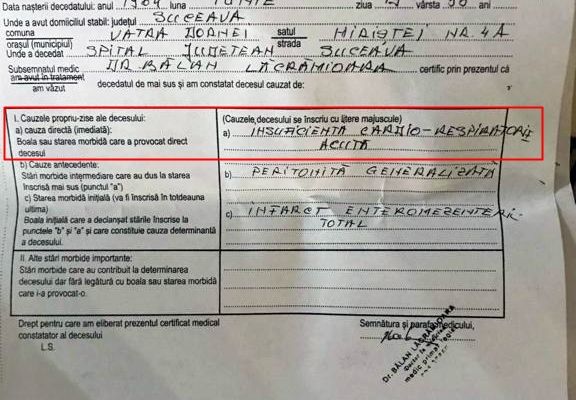 Data nașterii decedatului: anul 1964 luna IUNIE ziua vârsta ani
Unde a avut domiciliul stabil: județul SUCEAVA
comuna VATRA DORNEI satul
orașul (municipiul) strada NR. 4A
Unde a decedat SPITAL JUDEȚEAN SUCEAVA
Subsemnatul medic DR BĂLAN LĂCRĂMIOARA certific prin prezentul că
am avut în tratament
am văzut decedatul de mai sus și am constatat decesul cauzat de:
I. Cauzele propriu-zise ale decesului: (Cauzele decesului se înscriu cu litere majuscule)
a) cauza directă (imediată): a) INSUFICIENȚĂ CARDIO-RESPIRATORIE
Boala sau starea morbidă care a provocat direct ACUTĂ
decesul
b) Cauze antecedente:
Stări morbide intermediare care au dus la starea b) PERITONITĂ GENERALIZATĂ
înscrisă mai sus (punctul "a")
c) Starea morbidă inițială (va fi înscrisă în totdeauna
ultima) c) INFARCT ENTEROMEZENTERIC
Boala inițială care a declanșat stările înscrise la TOTAL
punctele "b" și "a" și care constituie cauza determinantă
a decesului.
II. Alte stări morbide importante:
Stări morbide care au contribuit la determinarea
decesului dar fără legătură cu boala sau starea morbidă
care i-a provocat-o.
Drept pentru care am eliberat prezentul certificat medical Semnătura și parafa medicului,
constatator al decesului
L.S.
Dr. BĂLAN LĂCRĂMIOARA
medic primar